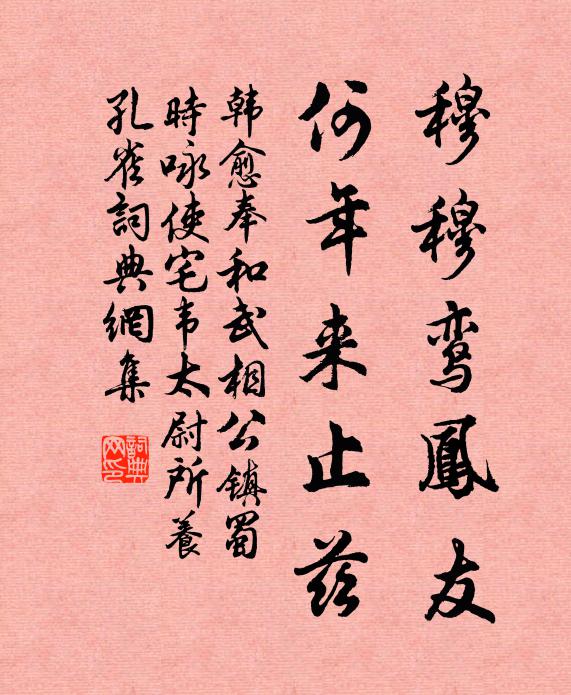 穆穆鸾鳳友
何年来止兹
韩愈奉和武相公镇蜀
時咏使宅韦太尉所養
孔雀詞典網集
詞典网印